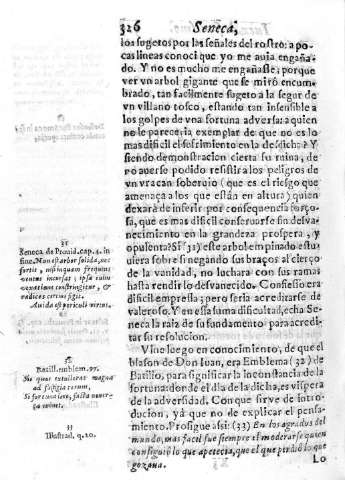 326 Seneca,
los sugetos por las señales del rostro: a po-
cas lineas conoci que yo me auia engaña-
do. Y no es mucho me engañasse; porque
ver vn arbol gigante que se miró encum-
brado, tan facilmente sugeto a la segur de
vn villano tosco, estando tan insensible a
los golpes de vna fortuna aduersa: a quien
no le parecería exemplar de que no es lo
mas dificil el sufrimiento en la desdicha? Y
siendo demonstracion cierta su ruina, de
no auerse podido resistir a los peligros de
vn vracan soberuio (que es el riesgo que
amenaça a los que están en altura) quien
dexará de inferir por consequencia forço-
sa, que es mas dificil conseruarse sin desva-
necimiento en la grandeza prospera, y
opulenta? Si (31) este arbol empinado estu-
uiera sobre si negando sus braços al cierço
de la vanidad, no luchara con sus ramas
hasta rendirlo desvanecido. Confiesso era
dificil empressa; pero seria acreditarse de
valeroso. Y en essa suma dificultad, echa Se-
neca la raiz de su fundamento para acredi-
tar su resolucion.
Vine luego en conocimiento, de que el
blason de Don Iuan, era Emblema (32) de
Batillo, para significar la inconstancia de la
fortuna: donde el dia de la dicha, es vispera
de la aduersidad. Con que sirve de intro-
duccion, ya que no de explicar el pensa-
miento. Prosigue assi: (33) En los agrados del
mando, mas facil fue siempre el moderarse quien
consiguió lo que apetecia, que el que perdió lo que
gozaua.
Lo
31
Seneca de Prouid. cap. 4. in
fine. Non est arbor solida, nec
fortis, nisi in quam frequens
ventus incursat; ipsa enim
vexatione constringitur, &
radices certius figit.
Auida est periculi virtus.
32
Batill. emblem. 97.
Ne quos extulerat magna
ad fastigia rerum,
Si fortuna leuis, facta nouerca
33
Illustrad. q. 10.